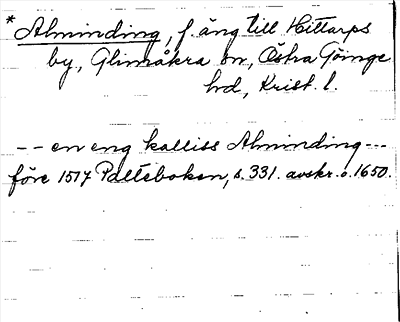 * Alminding, f. äng till Hittarps
by, Glimåkra sn, Östra Göinge
hd, Krist. l.
-- en eng kalliss Alminding ---
före 1517 Palteboken, s. 331. avskr. o. 1650.